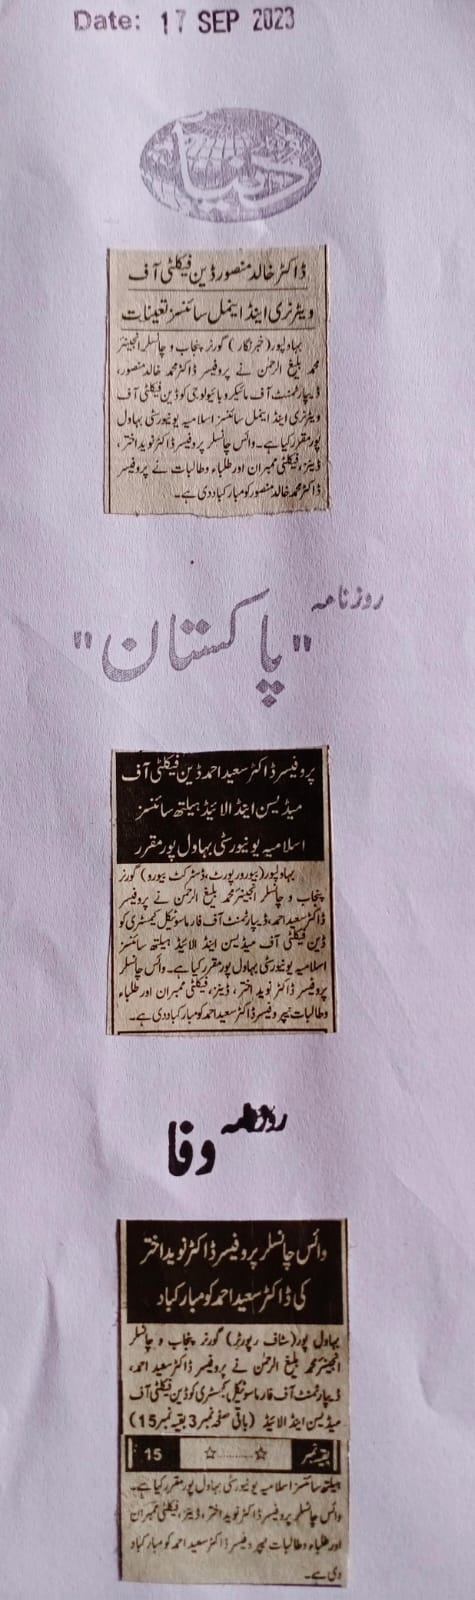 Date: 17 SEP 2023
دنیا
ڈاکٹر خالد منصور ڈین فیکلٹی آف
ویٹرنری اینڈ اینمل سائنسز تعینات
بہاولپور (خبرنگار) گورنر پنجاب و چانسلر انجینئر
محمد بلیغ الرحمٰن نے پروفیسر ڈاکٹر محمد خالد منصور،
ڈیپارٹمنٹ آف مائیکروبائیولوجی کو ڈین فیکلٹی آف
ویٹرنری اینڈ اینمل سائنسز اسلامیہ یونیورسٹی بہاول
پور مقرر کیا ہے۔ وائس چانسلر پروفیسر ڈاکٹر نوید اختر،
ڈینز، فیکلٹی ممبران اور طلباء وطالبات نے پروفیسر
ڈاکٹر محمد خالد منصور کو مبارکباد دی ہے۔
روزنامہ
"پاکستان"
پروفیسر ڈاکٹر سعید احمد ڈین فیکلٹی آف
میڈیسن اینڈ الائیڈ ہیلتھ سائنسز
اسلامیہ یونیورسٹی بہاول پور مقرر
بہاولپور (بیورو رپورٹ، ڈسٹرکٹ بیورو) گورنر
پنجاب و چانسلر انجینئر محمد بلیغ الرحمن نے پروفیسر
ڈاکٹر سعید احمد، ڈیپارٹمنٹ آف فارماسوٹیکل کیمسٹری کو
ڈین فیکلٹی آف میڈیسن اینڈ الائیڈ ہیلتھ سائنسز
اسلامیہ یونیورسٹی بہاول پور مقرر کیا ہے۔ وائس چانسلر
پروفیسر ڈاکٹر نوید اختر، ڈینز، فیکلٹی ممبران اور طلباء
وطالبات نے پروفیسر ڈاکٹر سعید احمد کو مبارکباد دی ہے۔
روزنامہ
وفا
وائس چانسلر پروفیسر ڈاکٹر نوید اختر
کی ڈاکٹر سعید احمد کو مبارکباد
بہاول پور (سٹاف رپورٹر) گورنر پنجاب و چانسلر
انجینئر محمد بلیغ الرحمٰن نے پروفیسر ڈاکٹر سعید احمد،
ڈیپارٹمنٹ آف فارماسوٹیکل کیمسٹری کو ڈین فیکلٹی آف
میڈیسن اینڈ الائیڈ (باقی صفحہ نمبر 3 بقیہ نمبر 15)
بقیہ نمبر ☆..........☆ 15
ہیلتھ سائنسز اسلامیہ یونیورسٹی بہاول پور مقرر کیا ہے۔
وائس چانسلر پروفیسر ڈاکٹر نوید اختر، ڈینز، فیکلٹی ممبران
اور طلباء وطالبات نے پروفیسر ڈاکٹر سعید احمد کو مبارکباد
دی ہے۔